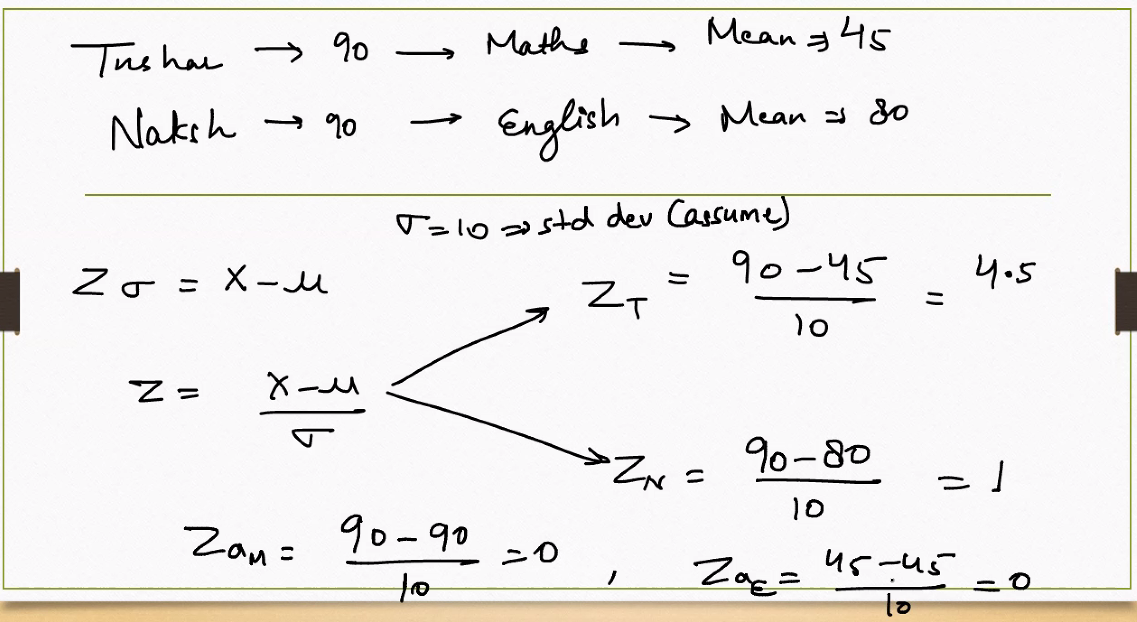 Tushar → 90 → Maths → Mean ⇒ 45
Naksh → 90 → English → Mean ⇒ 80
σ = 10 ⇒ std dev (assume)
Zσ = X - μ
Z_T = (90 - 45) / 10 = 4.5
Z = (X - μ) / σ
Z_N = (90 - 80) / 10 = 1
Z_aM = (90 - 90) / 10 = 0 , Z_aE = (45 - 45) / 10 = 0